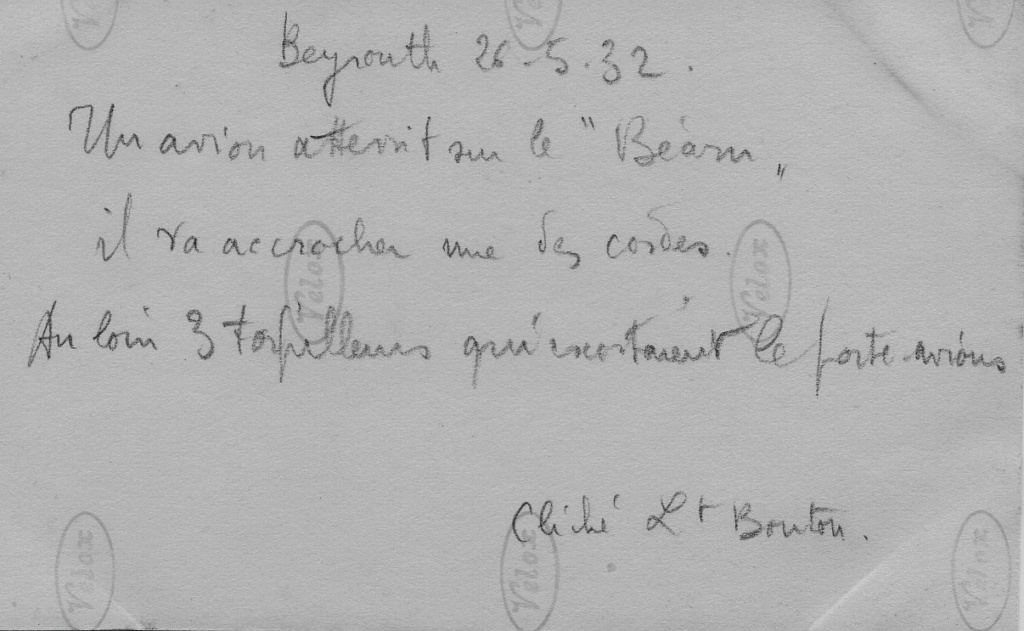 Beyrouth 26-5-32.
Un avion atterrit sur le "Béarn"
il va accrocher une des cordes.
Au loin 3 torpilleurs qui escortaient le porte-avions
Cliché Lt Bouton.
Velox
Velox
Velox
Velox
Velox
Velox
Velox
Velox